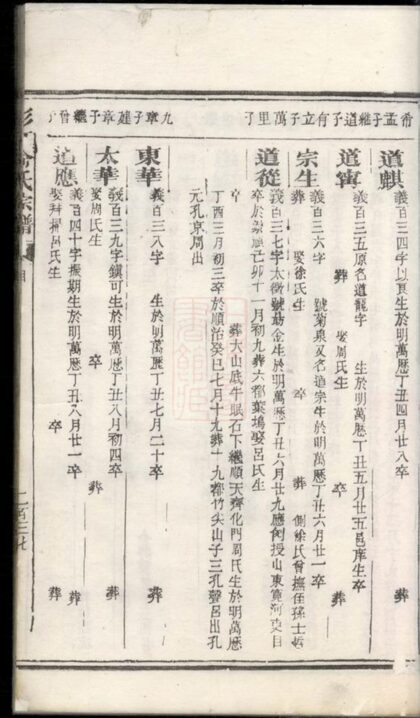 孟子維道子有立子萬里丁
九章子建章子繼曾丁
道麒
義百三四字以良生於明萬曆丁丑八月廿八卒
葬
道甯
義百三五原名道龍字 生於明萬曆丁丑五月廿五邑庠生卒
葬 娶周氏生 卒 葬
宗生
義百三六字 號菊泉又名道宗生於明萬曆丁丑六月廿一卒
娶徐氏生 卒 葬 側徐氏曾撫侄孫士
道從
義百三七字太 號 金生於明萬曆丁丑六月廿九應例授山東 河 目
卒於 己卯十一月初九葬六 葉塢娶呂氏生
卒 葬大山底牛眠石下 順天齊化門周氏生於明萬曆
丁酉三月初三卒於順治癸巳七月十九葬十九都竹尖山子三孔 呂出孔
元孔京周出
東華
義百三八字 生於明萬曆丁丑七月二十卒 葬
太華
義百三九字鎮可生於明萬曆丁丑八月初四卒
娶周氏生 卒 葬
道應
義百四十字振期生於明萬曆丁丑八月廿一卒 葬
娶 呂氏生 卒 葬
氏宗譜